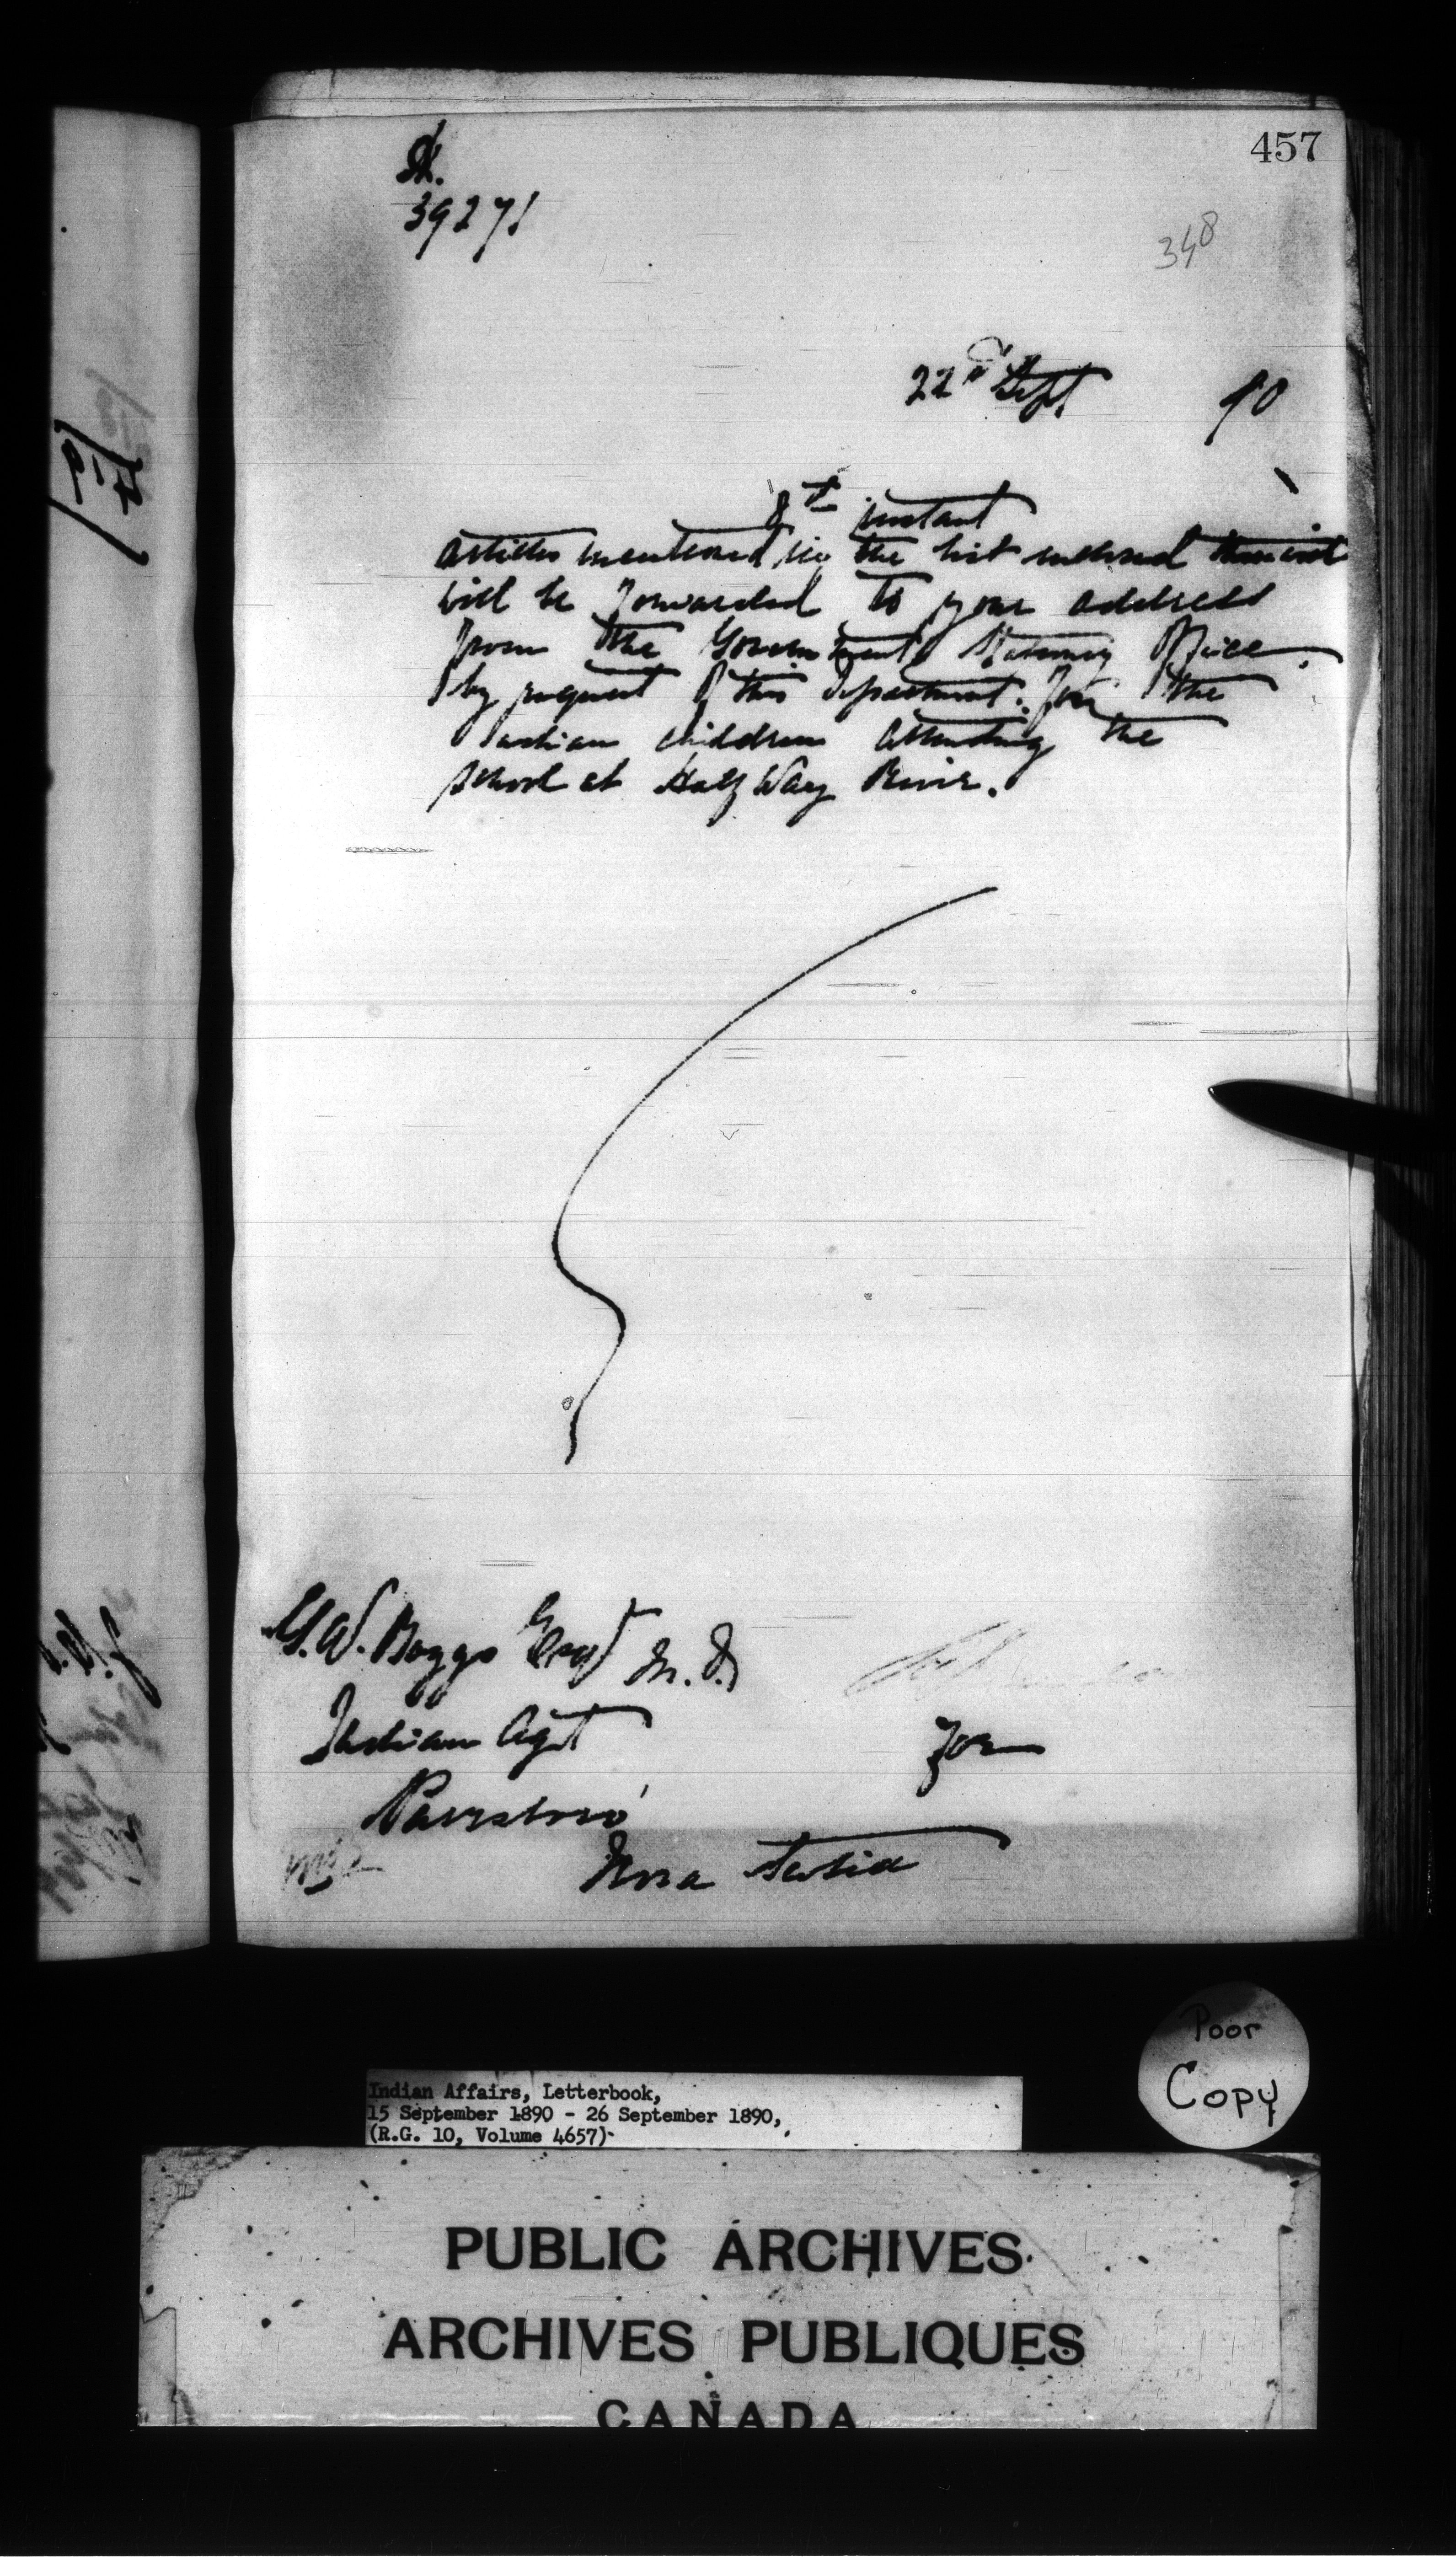 457
39271
348
22nd Sept 90
8th instant
articles mentioned in the list enclosed therewith
will be forwarded to your address
from the Government Stationery Office
by request of this Department. for the
Indian children attending the
school at Half Way River.
G.W. Boggs Esqr M.D.
Indian Agt
for
Parrsboro
Nova Scotia
Poor
Copy
Indian Affairs, Letterbook,
15 September 1890 - 26 September 1890,
(R.G. 10, Volume 4657)
PUBLIC ARCHIVES
ARCHIVES PUBLIQUES
CANADA